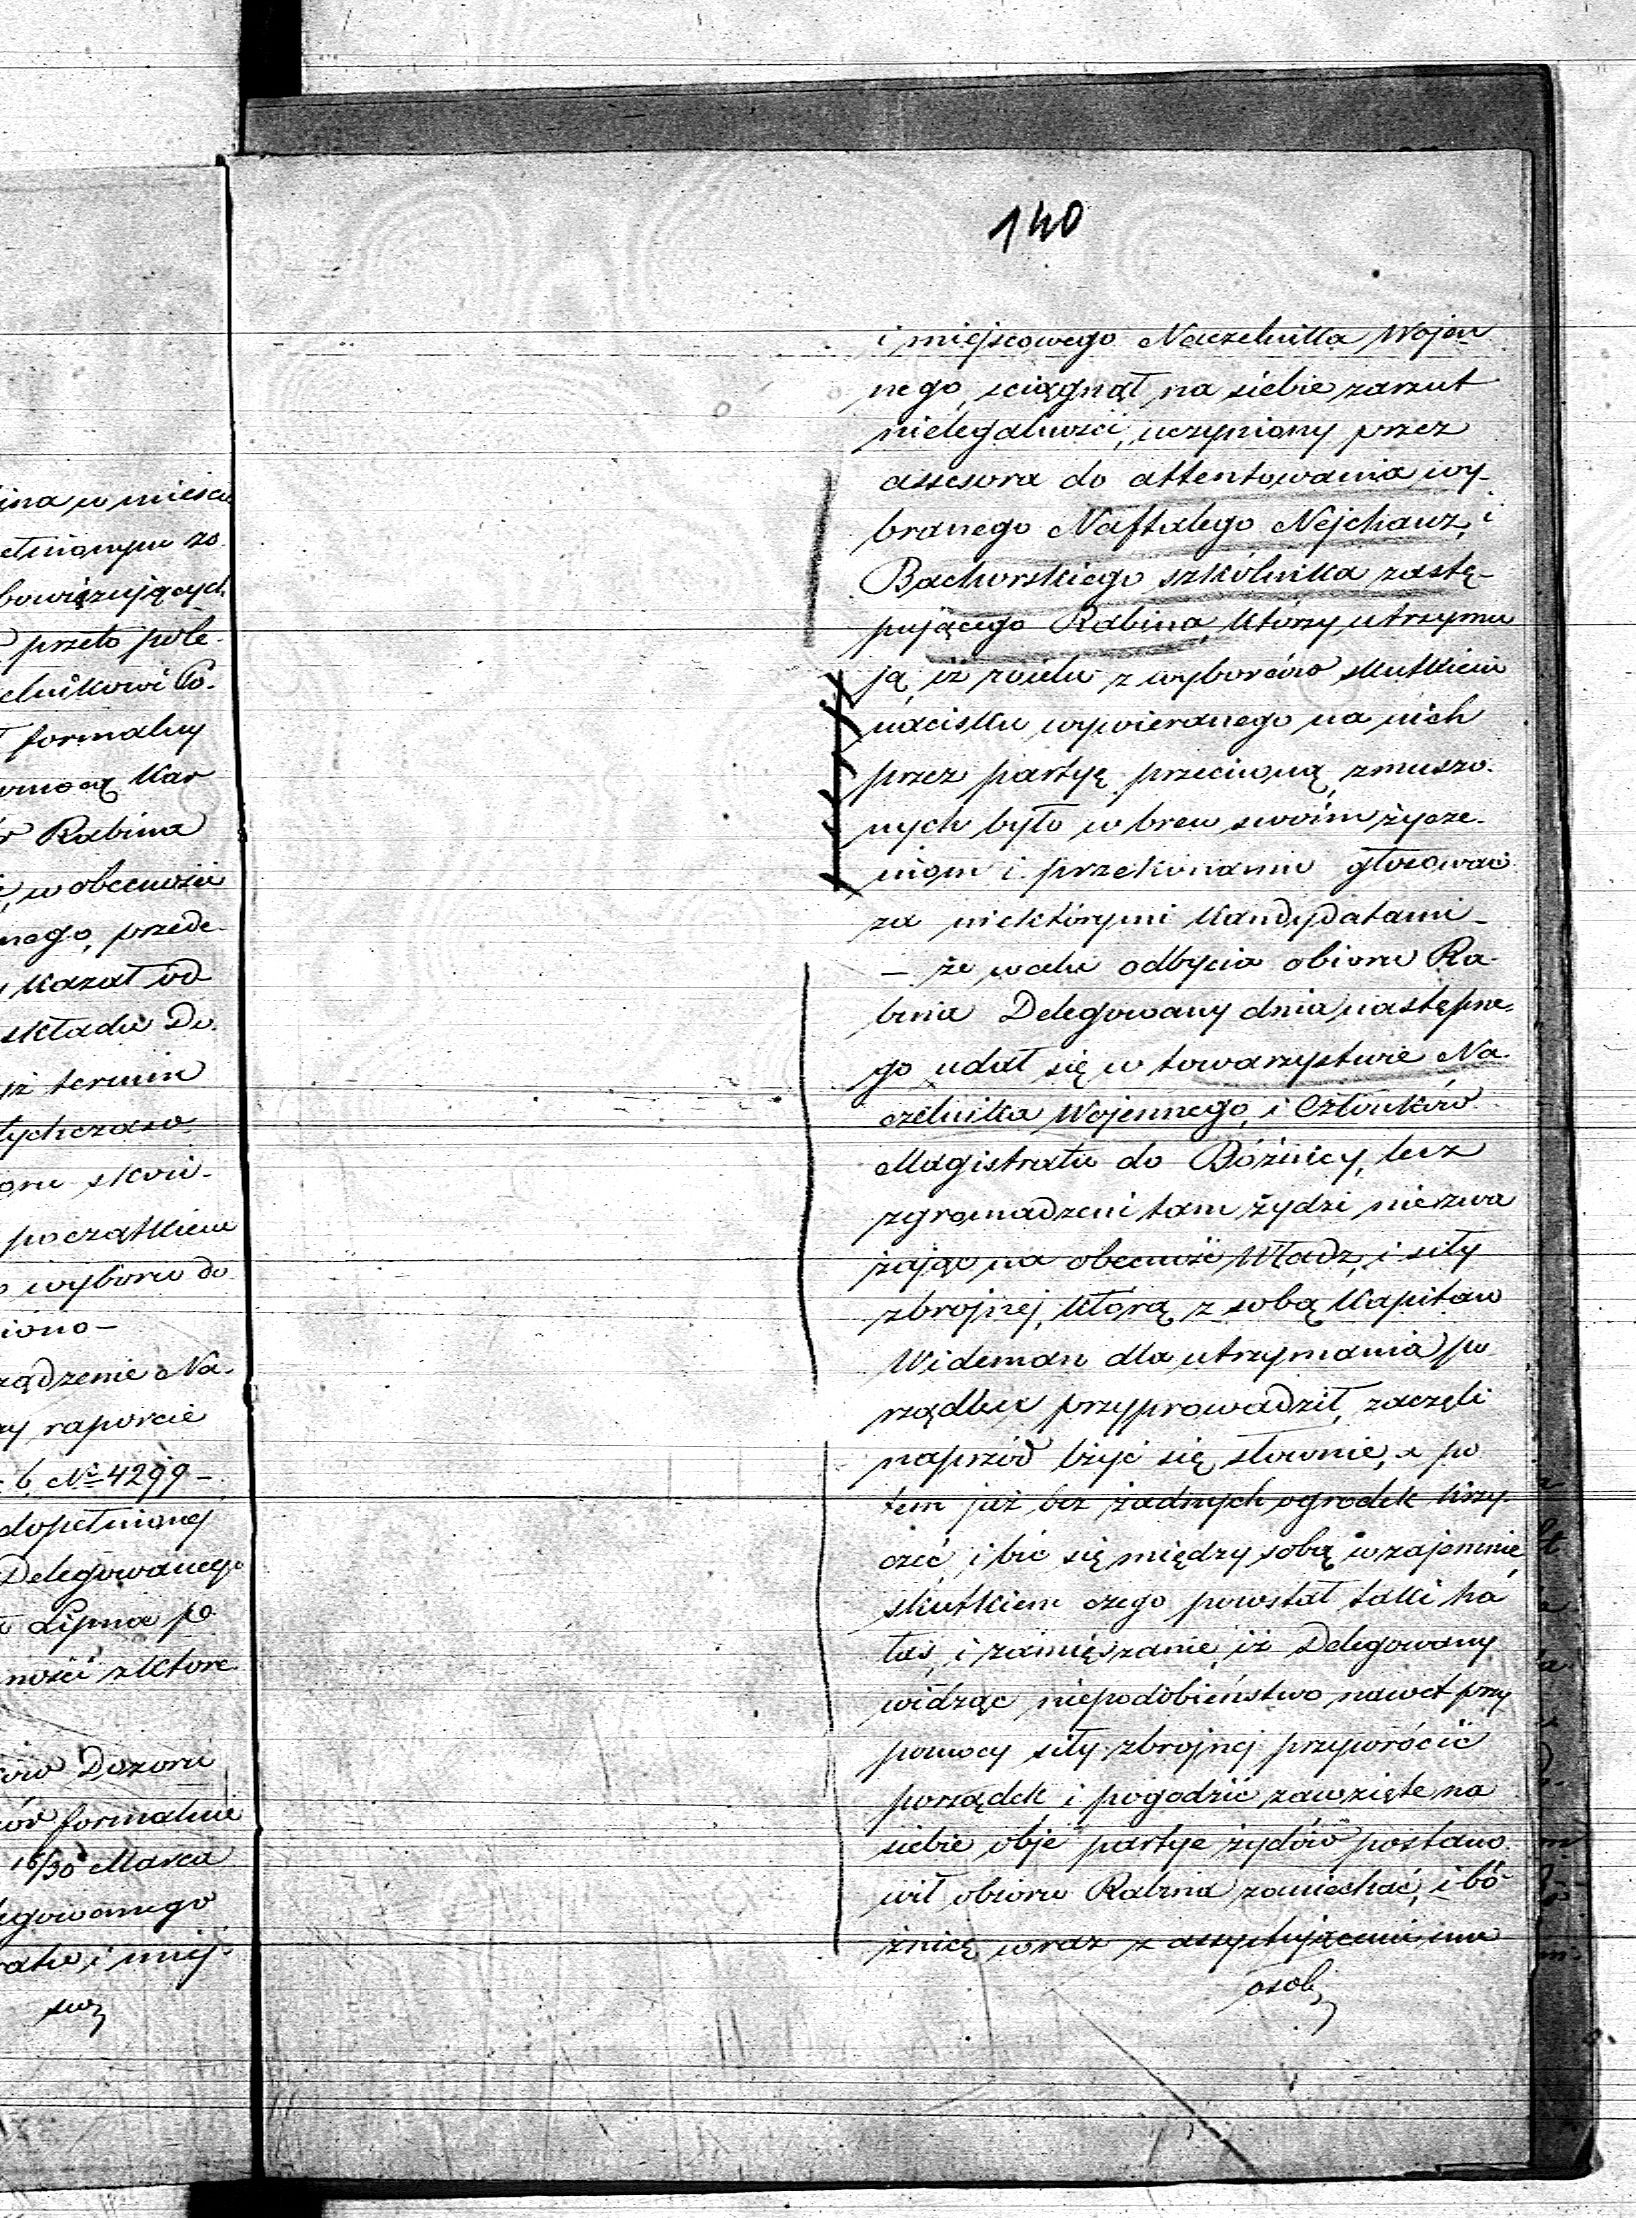 140
i miejscowego Naczelnika Wojen
nego, sciągnął na siebie zarzut
nielegalności, uczyniony przez
assesora do attentowania wy-
branego Naftalego Nejchauz, i
Bachorskiego szkólnika zastę-
pującego Rabina, którzy utrzymu
ją, iż wielu z wyborców skutkiem
nacisku wywieranego na nich
przez partyę przeciwną, zmuszo-
nych było w brew swoim życze-
niom i przekonaniu głosować
za niektórymi kandydatami -
- że w celu odbycia obioru Ra-
bina Delegowany dnia następne-
go udał się w towarzystwie Na-
czelnika Wojennego, i Członków
Magistratu do Bóżnicy, lecz
zgromadzeni tam żydzi niezwa
żając na obecność Władz, i siły
zbrojnej, którą z sobą Kapitan
Wideman dla utrzymania po
rządku przyprowadził, zaczęli
naprzód lżyć się słownie, a po
tem już bez żadnych ogrodek krzy-
czeć, i bić się między sobą wzajemnie,
skutkiem czego powstał taki ha
łas, i zamięszanie, iż Delegowany
widząc niepodobieństwo nawet przy
pomocy siły zbrojnej przywrócić
porządek i pogodzić zawzięte na
siebie obje partye żydów postano
wił obioru Rabina zaniechać, i bó-
żnicę wraz z assystującemi mu
osob
ina w miescie
ełnionym zo
bowiązujących
przeto pole-
elnikowi Po-
formalny
Rabina
w obecności
nego, przede-
kazał od
składu Do-
iż termin
tychczaso-
początkiem
wyboru do
iono -
ządzenie Na-
raporcie
6 № 4299 -
dopełnionej
Delegowanego
Lipna po
ności z które
Dozoru
formalnie
18/30 Marca
legowanego
ratu, i miej-